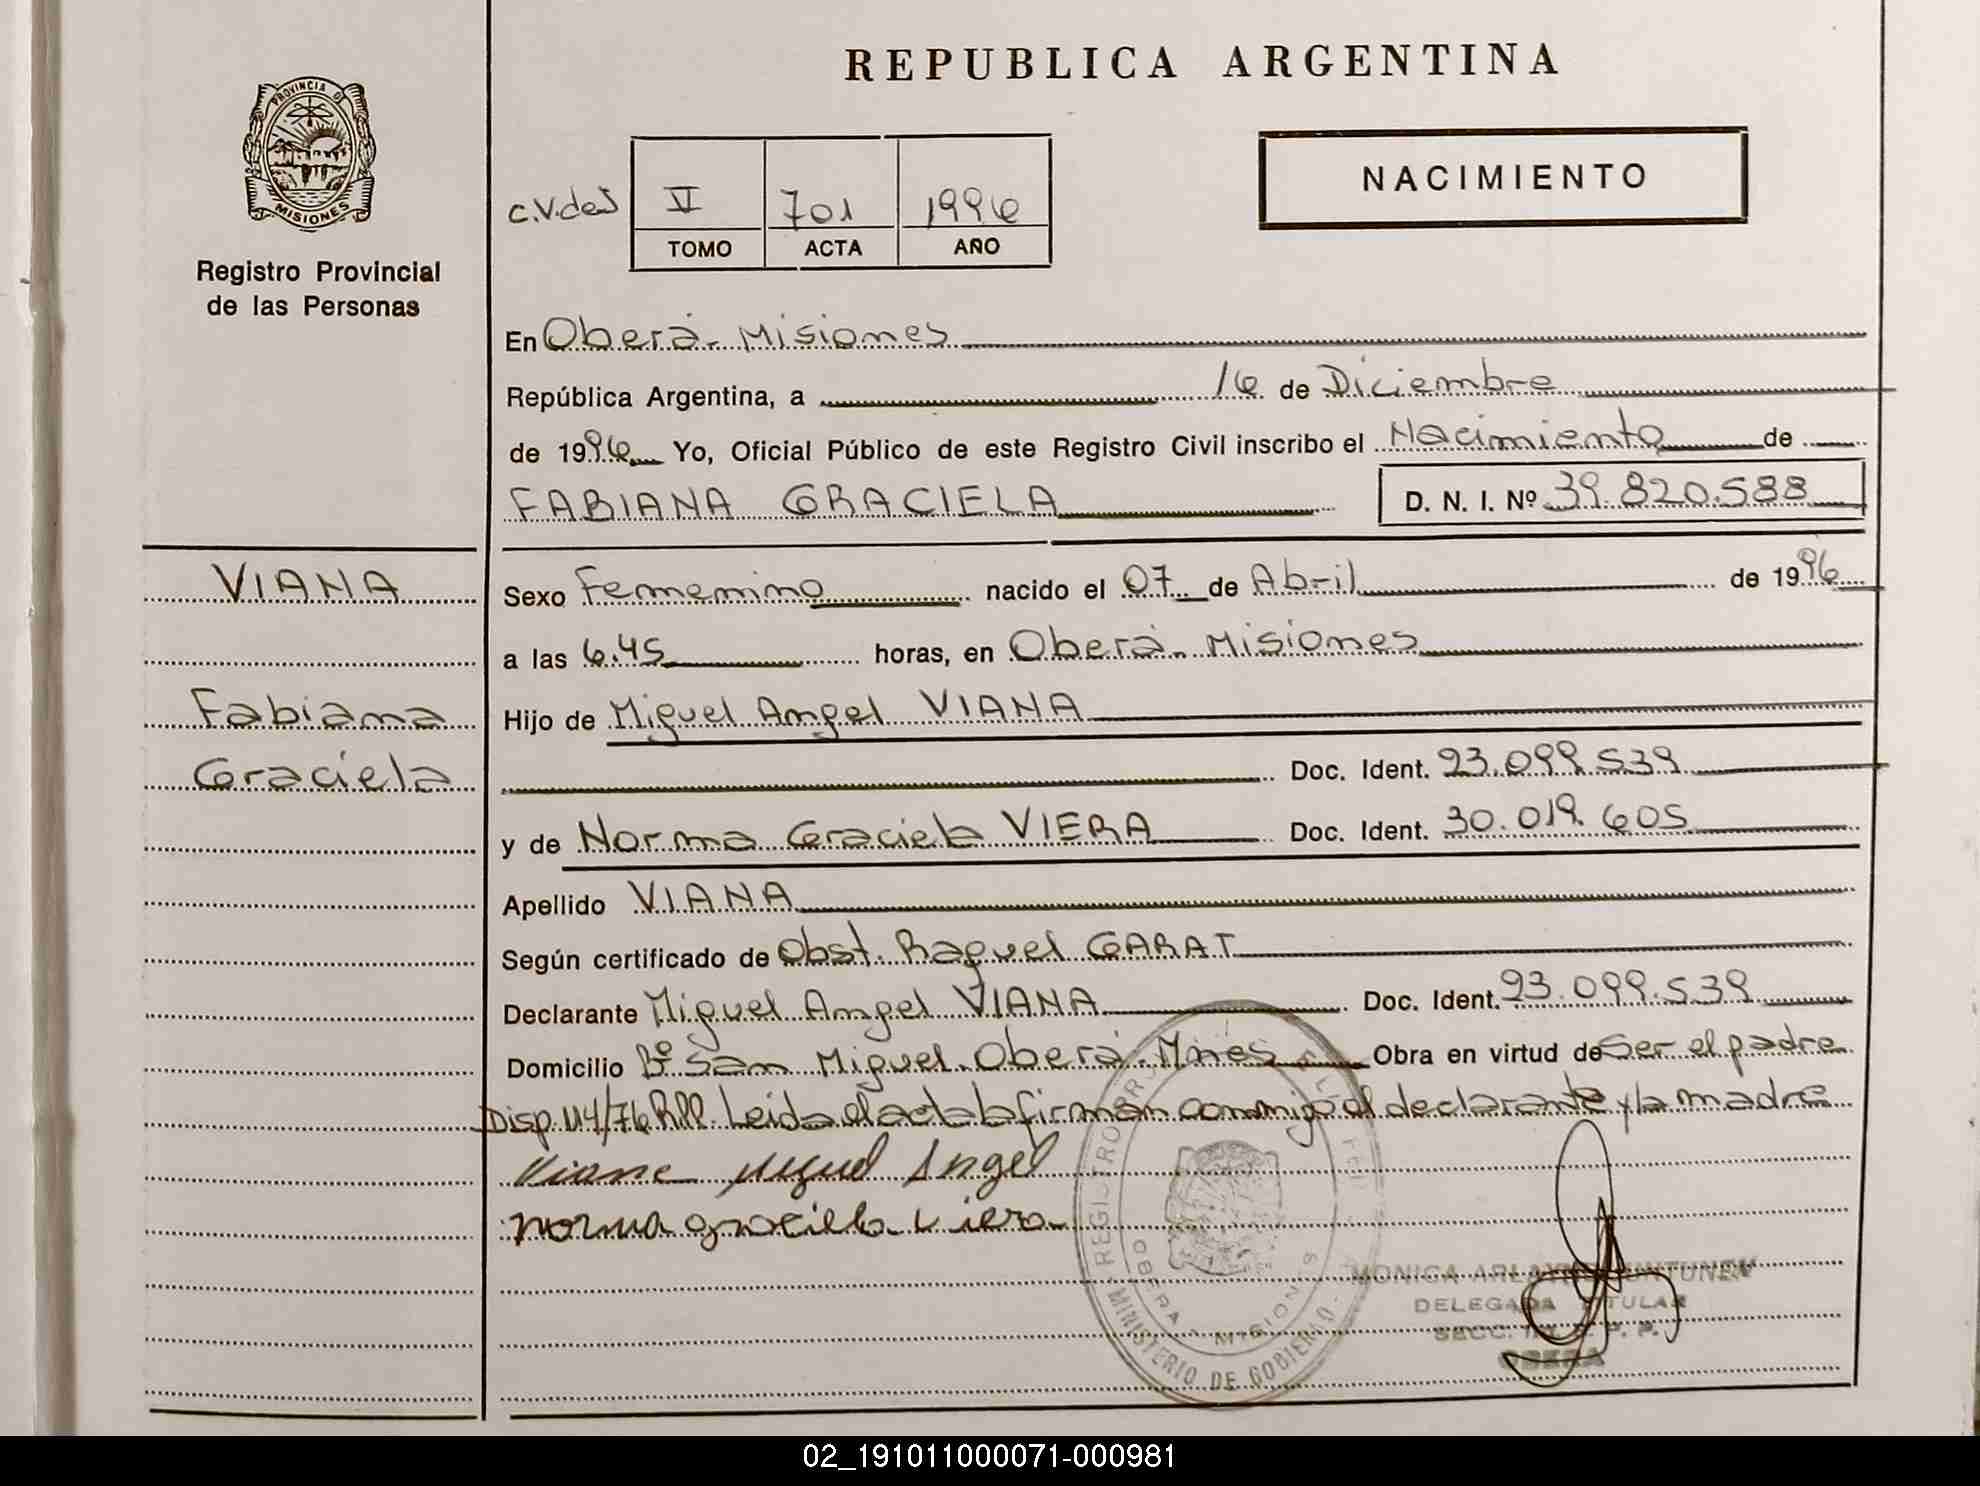 REPUBLICA ARGENTINA
PROVINCIA D
MISIONES
Registro Provincial
de las Personas
NACIMIENTO
V 701 1996
TOMO ACTA AÑO
En Oberá - Misiones
República Argentina, a 16 de Diciembre
de 1996 Yo, Oficial Público de este Registro Civil inscribo el Nacimiento de
FABIANA GRACIELA D. N. I. Nº 39.820.588
VIANA
Fabiana
Graciela
Sexo Femenino nacido el 07 de Abril de 1996
a las 6.45 horas, en Oberá - Misiones
Hijo de Miguel Angel VIANA
Doc. Ident. 93.099.539
y de Norma Graciela VIERA Doc. Ident. 30.019.605
Apellido VIANA
Según certificado de Obst. Raquel GARAT
Declarante Miguel Angel VIANA Doc. Ident. 93.099.539
Domicilio Bº San Miguel. Oberá. Mnes Obra en virtud de Ser el padre
Disp. 114/76 R.P.P. Leida el acta la firman conmigo el declarante y la madre
Viana Miguel Angel
Norma graciela Viera
REGISTRO
OBERA MISIONES
MINISTERIO DE GOBIERNO
MONICA
DELEGADA TITULAR
SECC.
OBERA
02_191011000071-000981